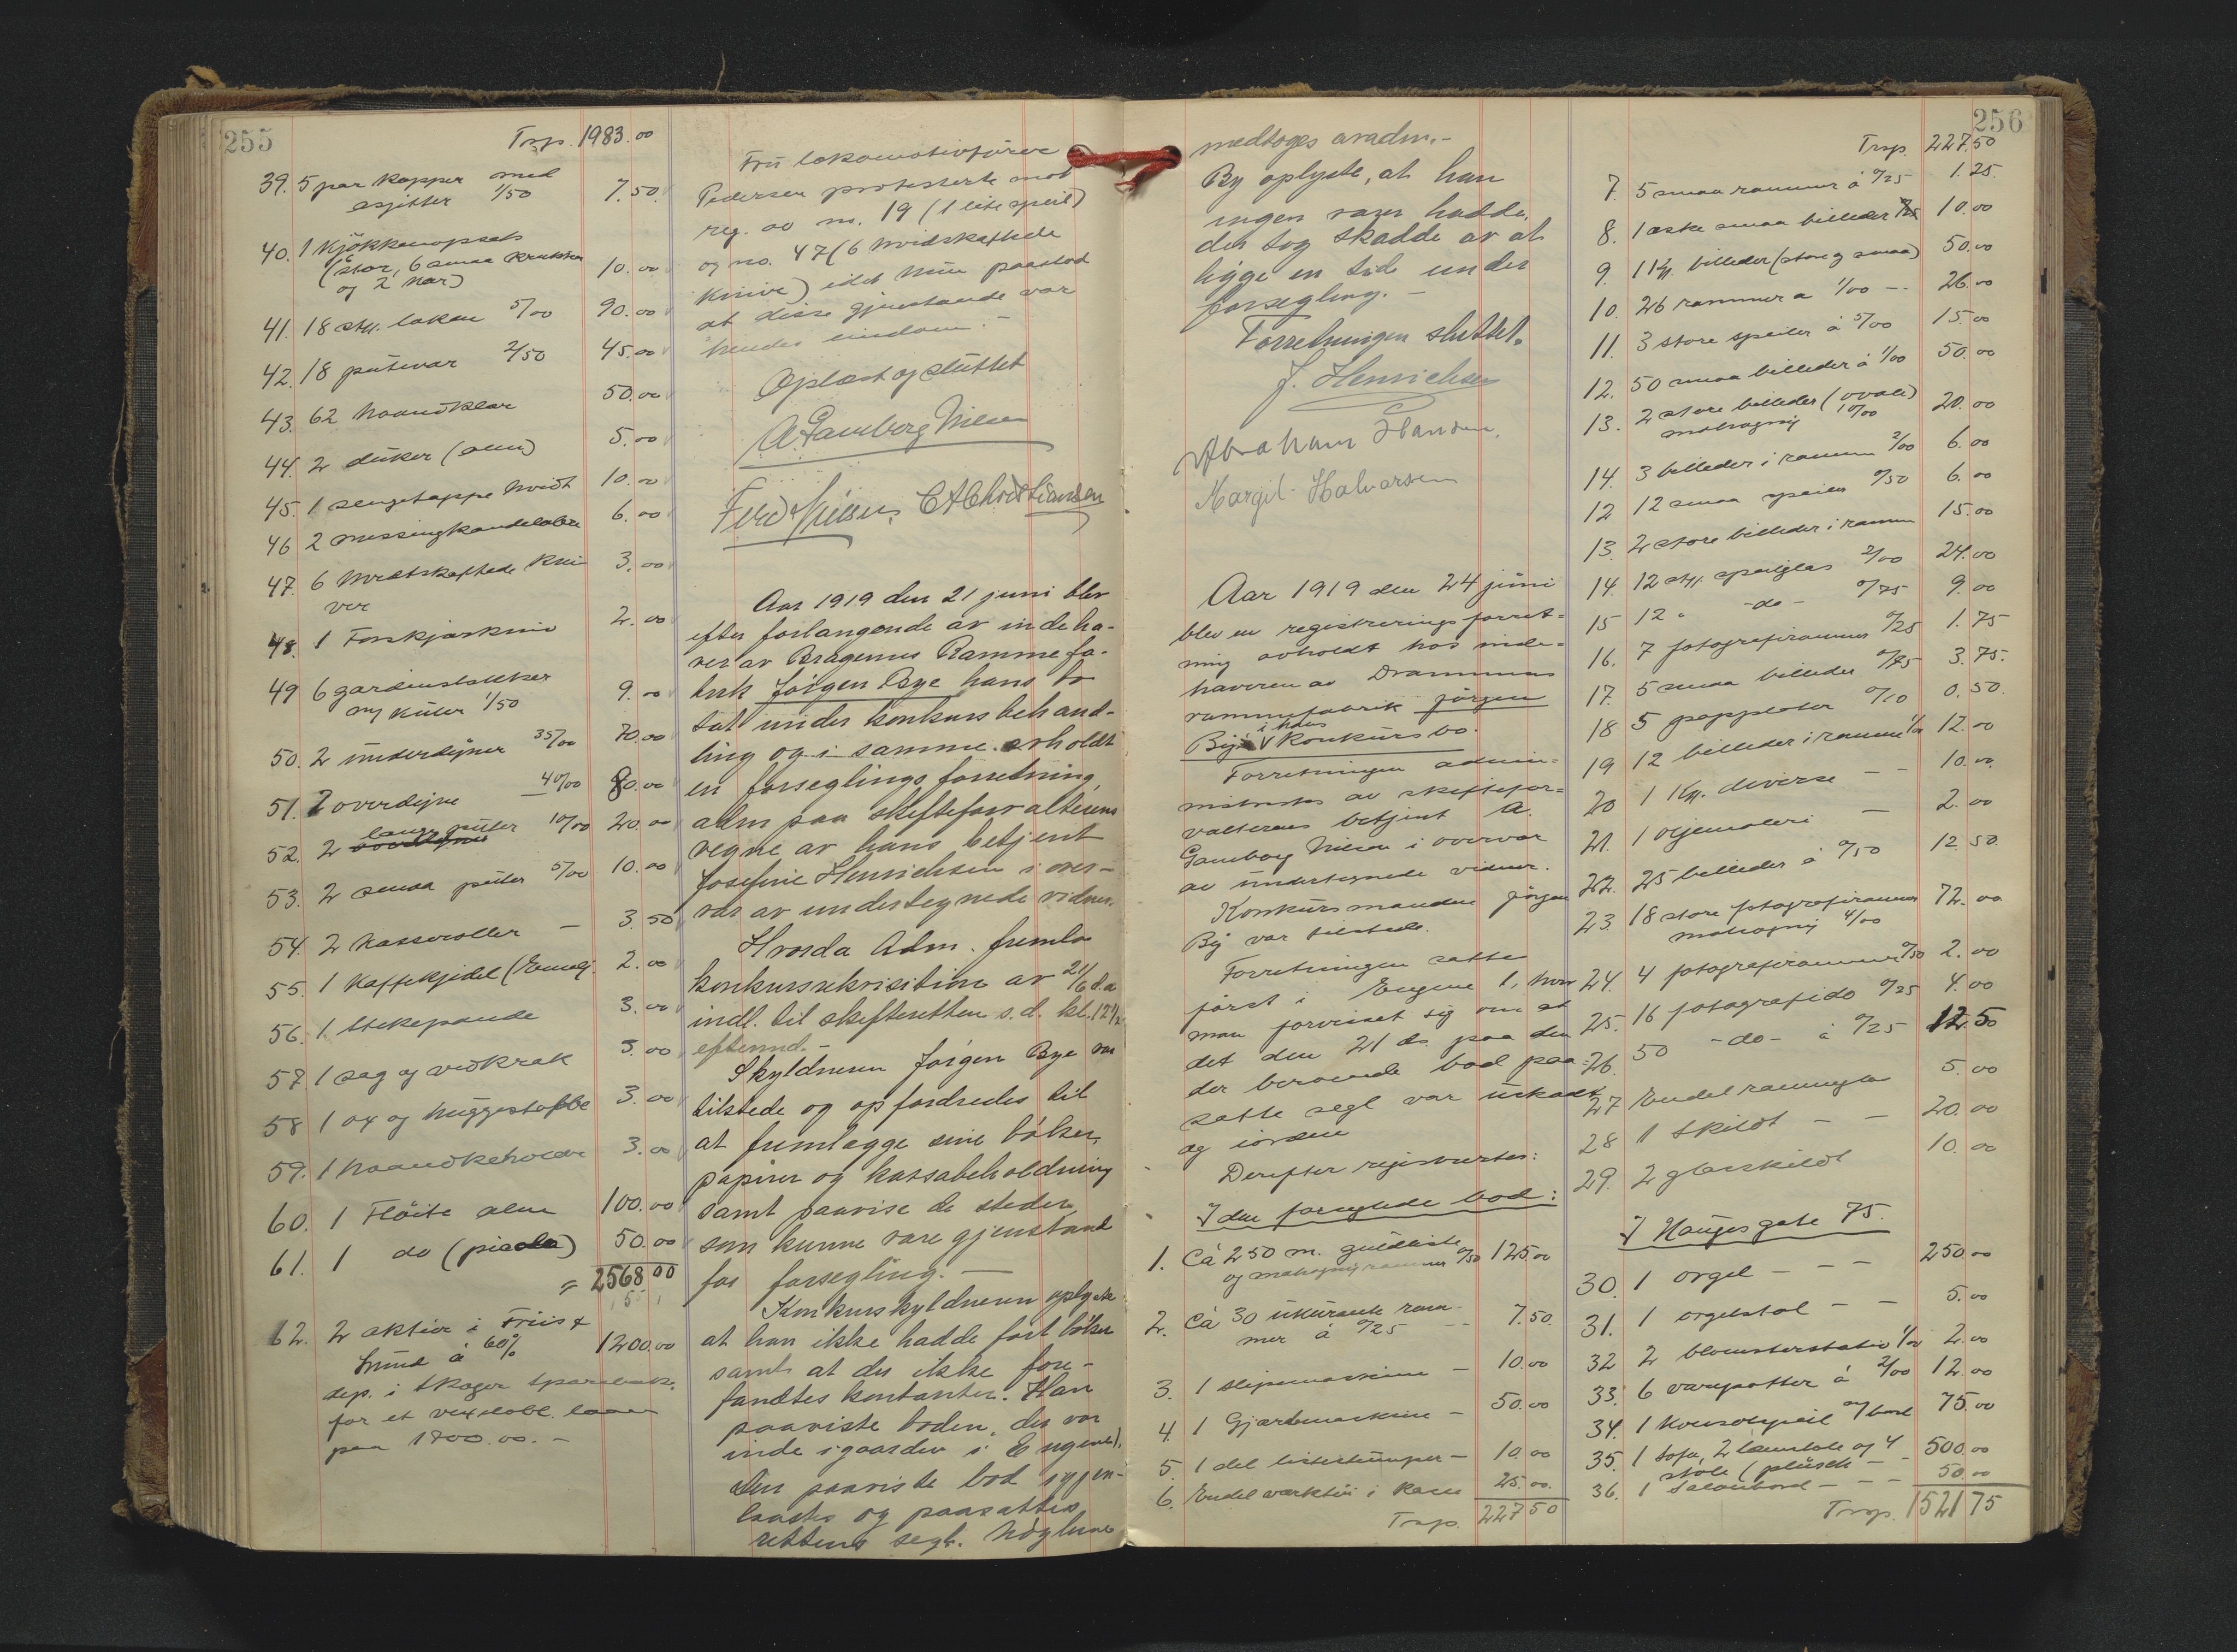 255
Trsp. 1983.00
39. 5 par kopper med
asjitter 1/50 7.50
40. 1 Kjøkkenopsats
(6 stor, 6 smaa Krukker
og 2 kar) 10.00
41. 18 stk. laken 5/00 90.00
42. 18 putevar 2/50 45.00
43. 62 haandklær 50.00
44. 2 duker (alm) 5.00
45. 1 sengetæppe hvidt 10.00
46 2 messingkandelabre 6.00
47. 6 hvidtskaftede kni
ver 3.00
48. 1 Forskjærkniv 2.00
49 6 gardinstokker
m/ kuler 1/50 9.00
50. 2 underdyner 35/00 70.00
51. 2 overdyne 40/00 80.00
52. 2 lange puter 10/00 20.00
53. 2 smaa puter 5/00 10.00
54. 2 kasseroller – 3.50
55. 1 Kaffekjedel (Emalj. 2.00
56. 1 stekepande 3.00
57. 1 sag og vedkrak 3.00
58 1 øx og huggestabbe 3.00
59. 1 haandkeholder 3.00
60. 1 Fløite alm 100.00
61. 1 do (picola) 50.00
= 2568.00
62. 2 aktier i Friis &
Lund à 60% 1200.00
dep. i Skoger Sparebank
for et vexelobl. laan
paa 1800.00. –
Fru lokomotivfører
Pedersen protesterte mot
reg. av no. 19 (1 lite speil)
og no. 47 (6 hvidskaftede
knive) idet hun paastod
at disse gjenstande var
hendes eiendom. –
Oplæst og sluttet
A. Gamborg Nilsen
Ferd Nilsen, C A Christiansen
Aar 1919 den 21 juni blev
efter forlangende av indeha-
ver av Bragernes Ramme fa-
brik Jørgen Bye hans bo
tat under konkursbehand-
ling og i samme avholdt
en forseglings forretning,
adm paa skifteforvalterens
vegne av hans betjent
Josefine Henrichsen i over-
vær av undertegnede vidner.
Hvorda Adm. fremla
konkursrekvisition av 21/6 d.a
indl. til skifteretten s.d. kl. 12 1/2
eftermd. –
Skyldneren Jørgen Bye var
tilstede og opfordredes til
at fremlægge sine bøker,
papirer og kassabeholdning
samt paavise de steder,
som kunne være gjenstand
for forsegling. –
Konkursskyldneren oplyste
at han ikke hadde ført bøker
samt at der ikke fore-
fandtes kontanter. Han
paaviste boden, der var
inde i gaarden i Engene 1.
Den paaviste bod igjen-
laastes og paasattes
rettens segl. Nøglene
256
medtoges av adm. –
By oplyste, at han
ingen varer hadde,
der tog skadde av at
ligge en tid under
forsegling. –
Forretningen sluttet.
J. Henrichsen
Abraham Hansen.
Margit Halvorsen
Aar 1919 den 24 juni
blev en registrerings forret=
ning avholdt hos inde=
haveren av Drammens
rammefabrik Jørgen
By i hans konkursbo.
Forretningen admin=
istrertes av skiftefor=
valterens betjent A.
Gamborg Nilsen i overvær
av undertegnede vidner.
Konkursmanden Jørgen
By var tilstede.
Forretningen sattes
først i Engene 1, hvor
man forvisset sig om at
det den 21 ds. paa den
der beroende bod paa=
satte segl var uskadt
og iorden
Derefter registrertes:
I den forseglede bod:
1. Ca 250 m. guldliste
og mahognyrammer 0/50 125.00
2. Ca 30 ukurante ram-
mer à 0/25 – – 7.50
3. 1 slipemaskine – 10.00
4. 1 Gjærdemaskine – 50.00
5. 1 del listestumper – 10.00
6. Endel værktøi i kasse 25.00.
Trsp. 227 50
Trsp. 227.50
7. 5 smaa rammer à 0/25 1.25.
8. 1 æske smaa billeder 10.00
9. 1 Kg. billeder (store og smaa) 50.00
10. 26 rammer a 1/00 – – 26.00
11. 3 store speiler à 5/00 15.00
12. 50 smaa billeder à 1/00 50.00
13. 2 store billeder (ovale)
mahogny 10/00 20.00
14. 3 billeder i ramme 2/00 6.00
12 12 smaa speiler 0/50 6.00
13. 2 store billeder i ramme 15.00
14. 12 stk. speilglas 2/00 24.00
15 12 " -do- 0/75 9.00
16. 7 fotografirammer 0/25 1.75
17. 5 smaa billeder 0/75 3.75.
18 5 papplater 0/10 0.50.
19 12 billeder i ramme 1/00 12.00
20 1 Kg. diverse – – 10.00.
21. 1 oljemaleri – 2.00
22. 25 billeder à 0/50 12.50.
23. 18 store fotografirammer
mahogny 4/00 72.00
24. 4 fotografirammer 0/50 2.00
25. 16 fotografido 0/25 4.00
26. 50 -do- à 0/25 12.50
27 Endel rammeglas 5.00
28 1 Skildt – – 20.00
29. 2 glasskildt 10.00
I Hauges gate 75.
30. 1 orgel – – – 250.00
31. 1 orgelstol – – 5.00
32 2 blomsterstativ 1/00 2.00
33. 6 varepotter à 2/00 12.00
34. 1 Konsolspeil m/bord 75.00
35. 1 sofa, 2 lænstole og 4
stole (plüsch – – 500.00
36. 1 Salonbord – – – 50.00
Trsp. 1521 75